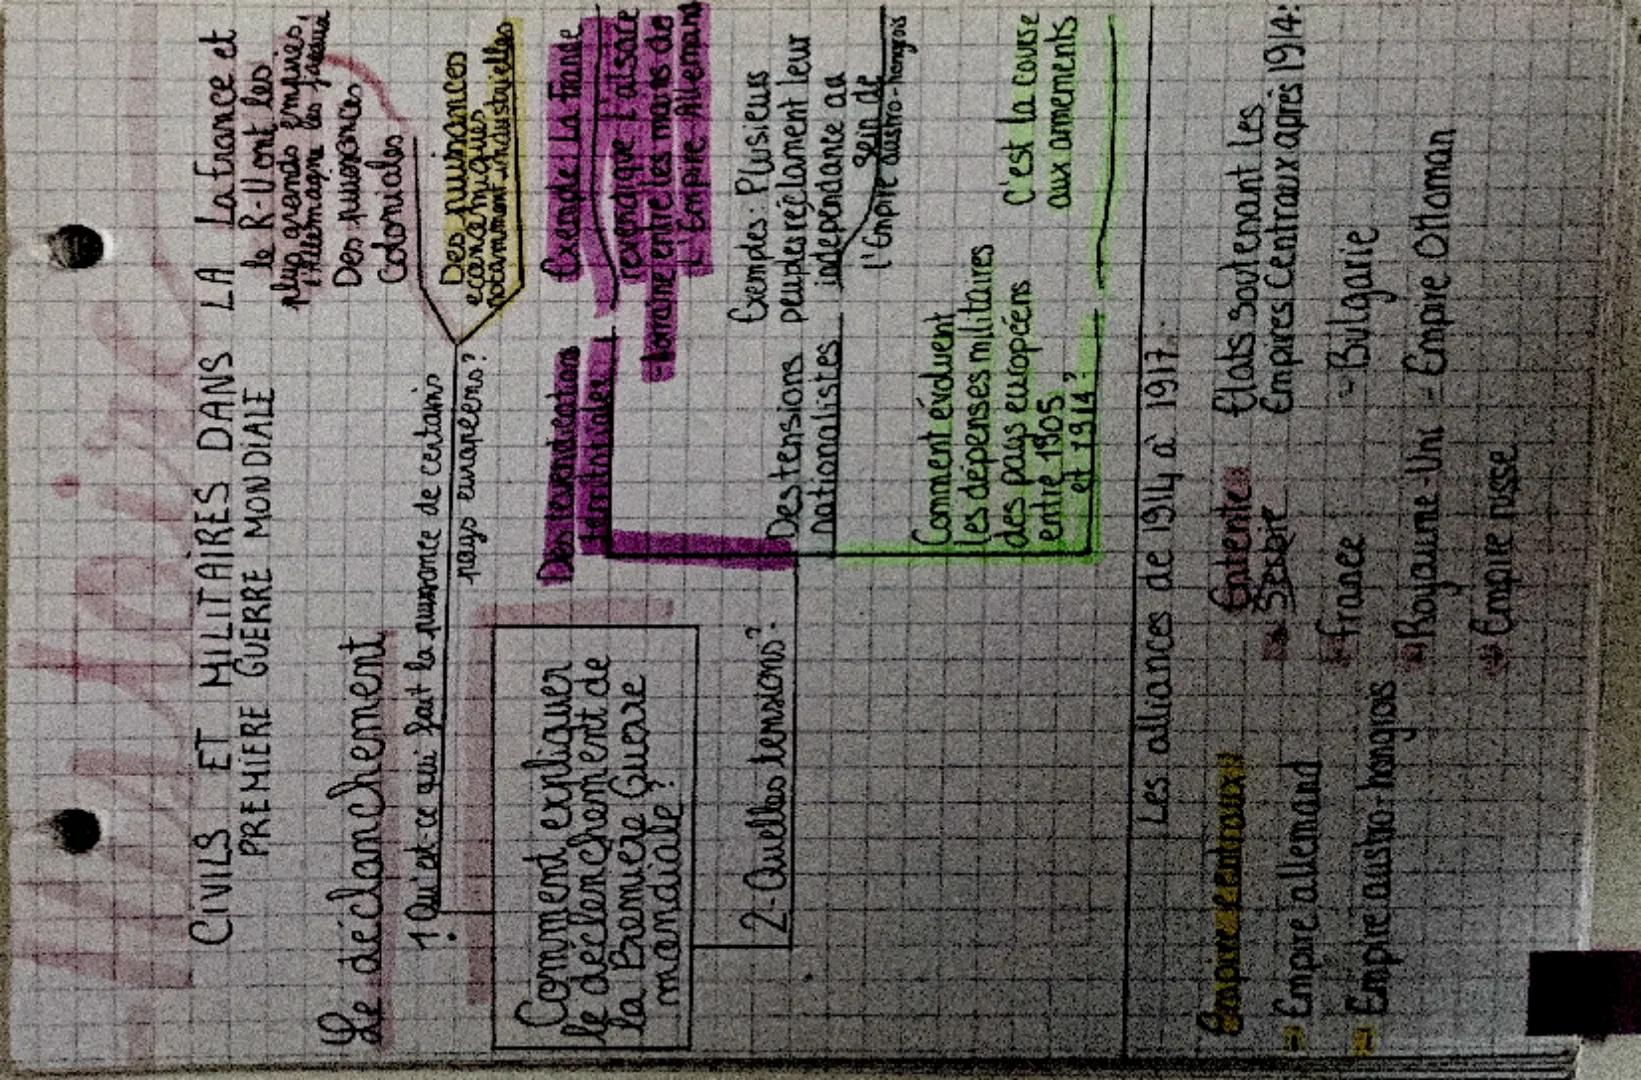 Histoire
CIVILS ET MILITAIRES DANS LA
PREMIERE GUERRE MONDIALE
Le déclanchement
1 Qu'est-ce qui fait la puissance de certains
pays européens?
La france et
le R-U ont les
plus grands empires,
l'Allemagne les
Des puissances
Coloniales
Des puissances
économiques
notamment industrielles
Comment expliquer
le déclenchement de
la Première Guerre
mondiale?
2-Quelles tensions?
Des revendications
territoriales
Exemple: La France
revendique l'alsace
-lorraine entre les mains de
l'Empire Allemand
Des tensions
nationalistes
Exemples: Plusieurs
peuples réclament leur
indépendance au
sein de
l'Empire austro-hongrois
Comment évoluent
les dépenses militaires
des pays européens
entre 1905
et 1914?
c'est la course
aux armements
Les aliances de 1914 à 1917:
Empire centraux
= Empire allemand
= Empire austro-hongrois
Entente:
Serbie
France
Royaume-Uni
Empire russe
États soutenant les
Empires Centraux après 1914:
- Bulgarie
- Empire Ottoman